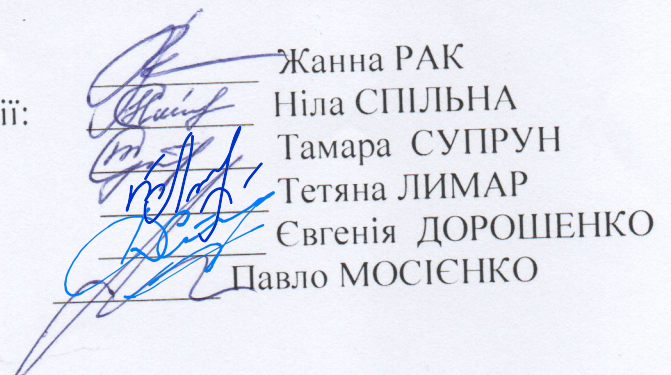 Жанна РАК
ії: Ніла СПІЛЬНА
Тамара СУПРУН
Тетяна ЛИМАР
Євгенія ДОРОШЕНКО
Павло МОСІЄНКО